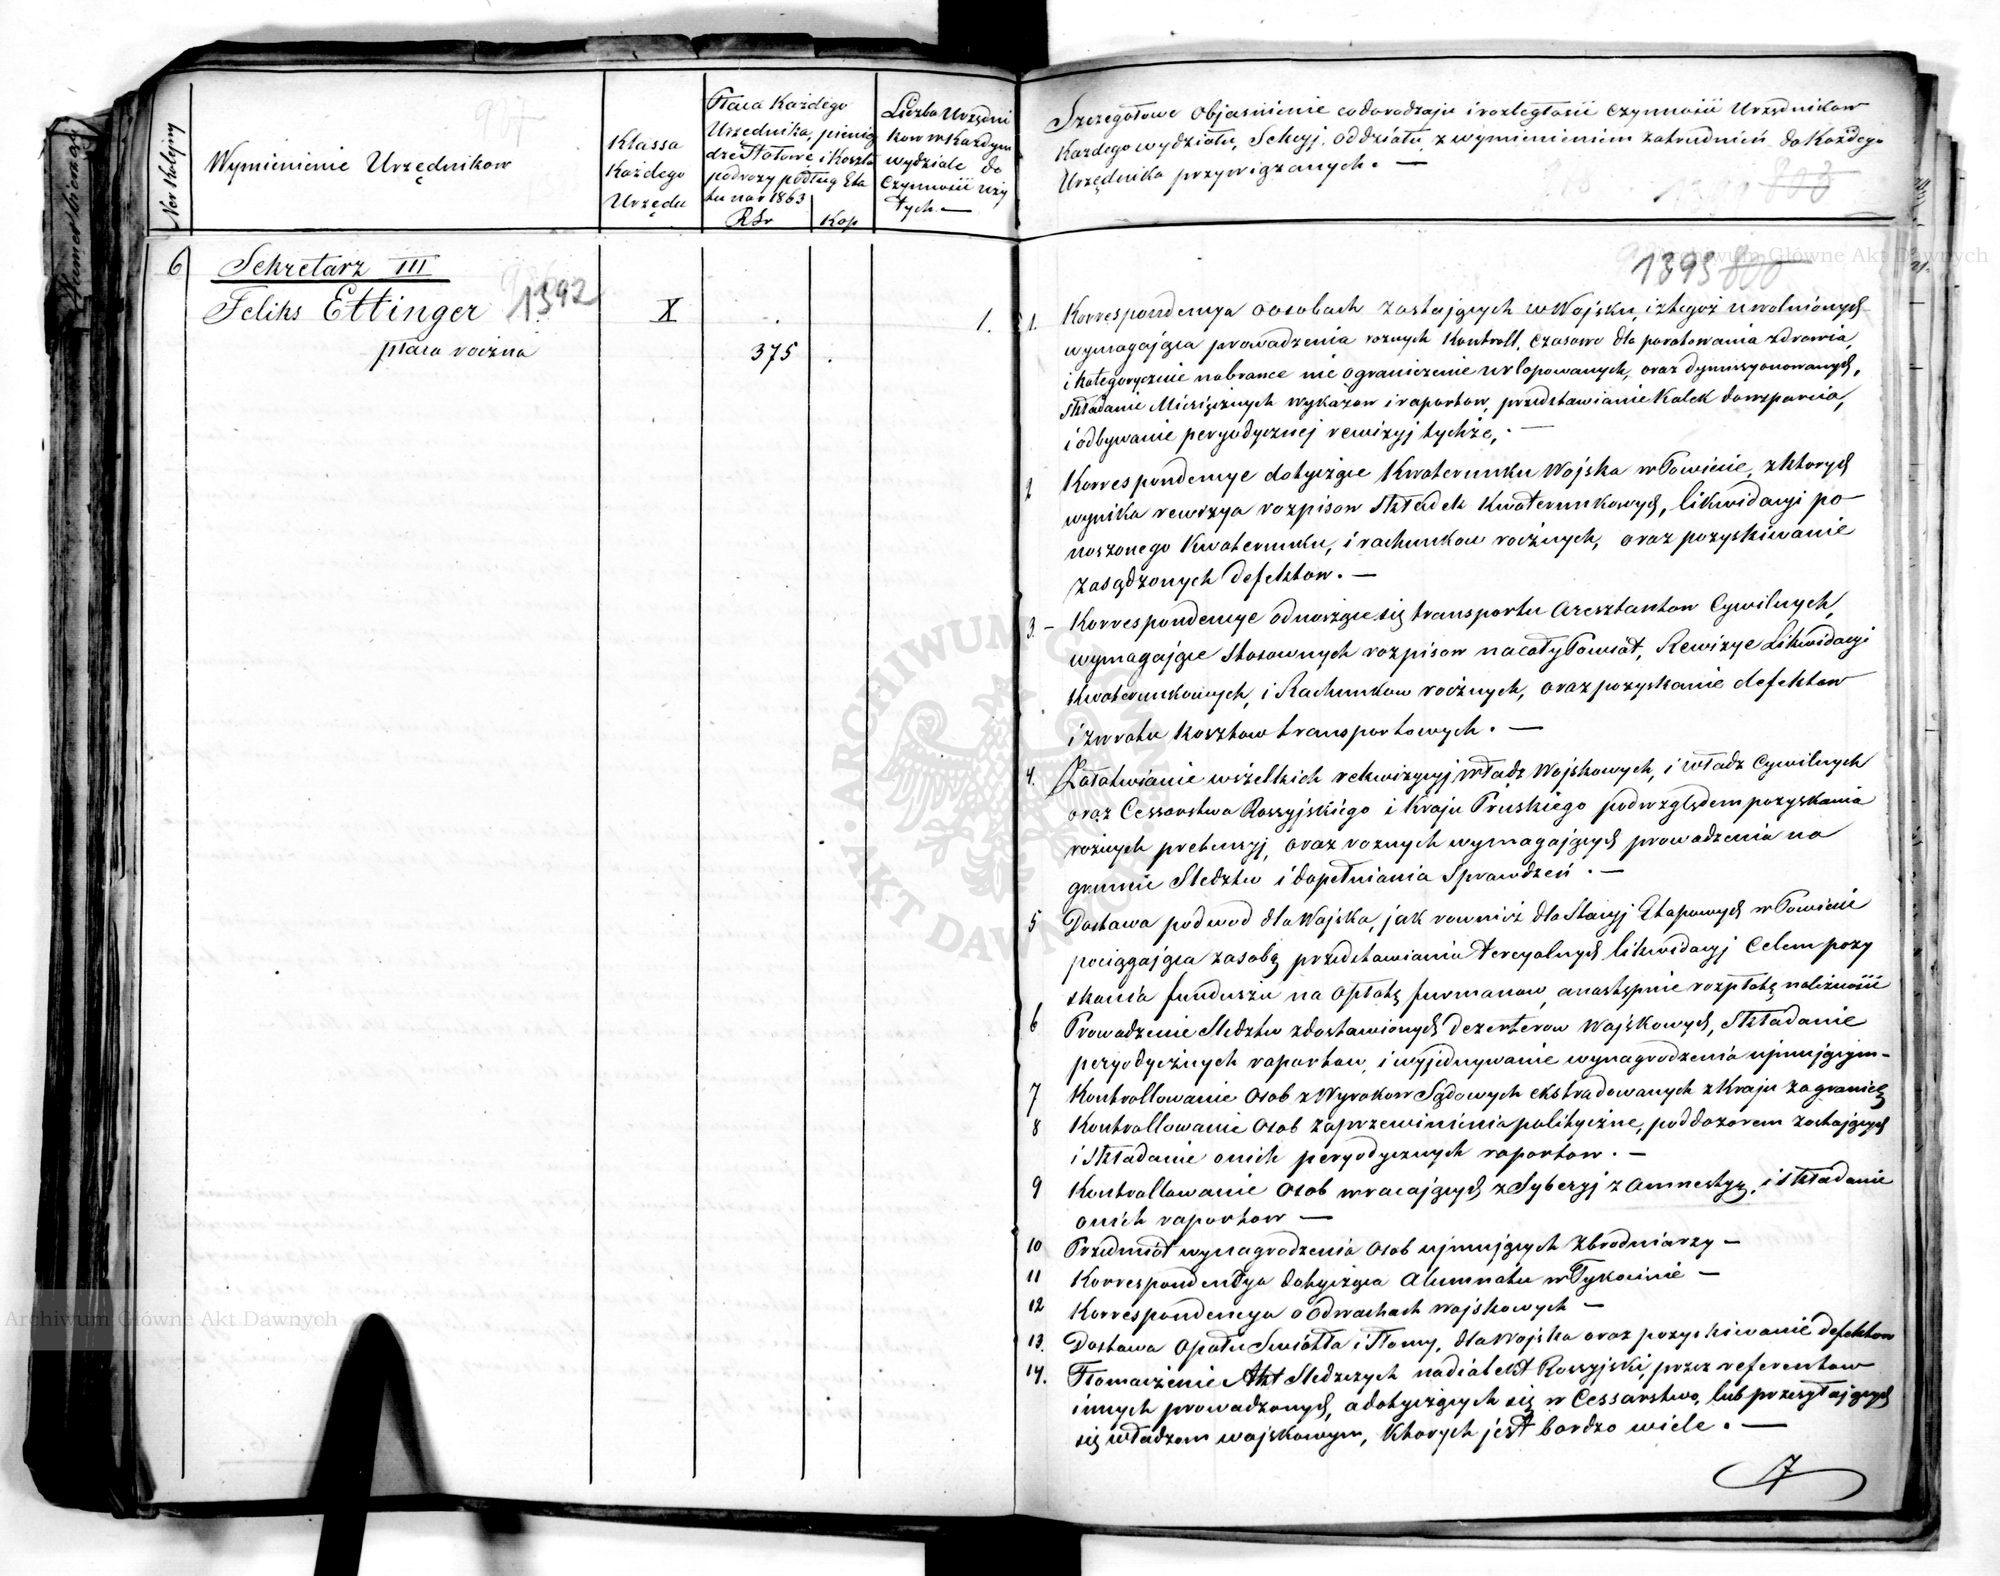 Ner kolejny
Wymienienie Urzędnikow
Klassa
Każdego
Urzędu
Płaca Każdego
Urzędnika, pienią
dze Stołowe i Koszta
podrozy podług Eta
tu na r 1863
RSr
Kop
Liczba Urzędni
kow w Każdym
wydziale do
Czynności uży
tych. —
6
Sekretarz III
Feliks Ettinger
1392
X
1.
płaca roczna
375
Szczegołowe objasnienie co do rodzaju i rozległości Czynności Urzędnikow
Każdego wydziału, Sekcyj, oddziału, z wymienieniem zatrudnień do Każdego
Urzędnika przywiązanych. —
803
1393 800
1. Korrespondencya o osobach zostających w Wojsku, i z tegoż uwolnionych
wymagająca prowadzenia roznych Kontroll, Czasowo dla poratowania zdrowia,
i Kategorycznie na brance nie ograniczenie urlopowanych, oraz dymissyonowanych,
składanie Miesięcznych wykazow i raportow, przedstawianie Kalek do wsparcia,
i odbywanie peryodycznej rewizyj tychże, —
2 Korrespondencye dotyczące Kwaterunku Wojska w Powiecie, z ktorych
wynika rewizya rozpisow składek Kwaterunkowych, likwidacyi po-
noszonego Kwaterunku, i rachunkow rocznych, oraz pozyskiwanie
zasądzonych defektow. —
3. — Korrespondencye odnoszące się transportu Aresztantow Cywilnych,
wymagające Stosownych rozpisow na cały Powiat, Rewizye Likwidacyi
Kwaterunkowych, i Rachunkow rocznych, oraz pozyskanie defektow
i zwrotu Kosztow transportowych. —
4. Załatwianie wszelkich rekwizycyj władz Wojskowych, i władz Cywilnych
oraz Cessarstwa Rossyjskiego i Kraju Pruskiego pod względem pozyskania
roznych pretensyj, oraz roznych wymagających prowadzenia na
gruncie Sledztw i dopełniania Sprawdzeń. —
5 Dostawa podwod dla Wojska, jak rownież dla Stacyj Etapowych w Powiecie
pociągająca za sobą przedstawiania tercyalnych likwidacyj Celem pozy
skania funduszu na opłatę furmanow, a następnie rozpłatę należności
6 Prowadzenie Sledztw z dostawionych dezerterow Wojskowych, składanie
peryodycznych raportow, i wyjednywanie wynagrodzenia ujmującym —
7 Kontrollowanie Osob z Wyrokow Sądowych ekstradowanych z Kraju zagranicę
8 Kontrollowanie Osob za przewinienia polityczne, pod dozorem zostających
i składanie o nich peryodycznych raportow. —
9 Kontrollowanie Osob wracających z Syberyj z Amnestyą, i składanie
o nich raportow —
10 Przedmiot wynagrodzenia osob ujmujących Zbrodniarzy —
11 Korrespondencya dotycząca Alumnatu w Tykocinie —
12 Korrespondencya o odwachach wojskowych —
13. Dostawa opału Swiatła i słomy, dla Wojska oraz pozyskiwanie defektow
14. Tłomaczenie Akt Sledczych na dialekt Rossyjski, przez referentow
innych prowadzonych, a dotyczących się w Cessarstwo, lub przesyłających
się władzom wojskowym, Ktorych jest bardzo wiele. —
7
Archiwum Główne Akt Dawnych
Archiwum Główne Akt Dawnych
ARCHIWUM GŁÓWNE AKT DAWNYCH